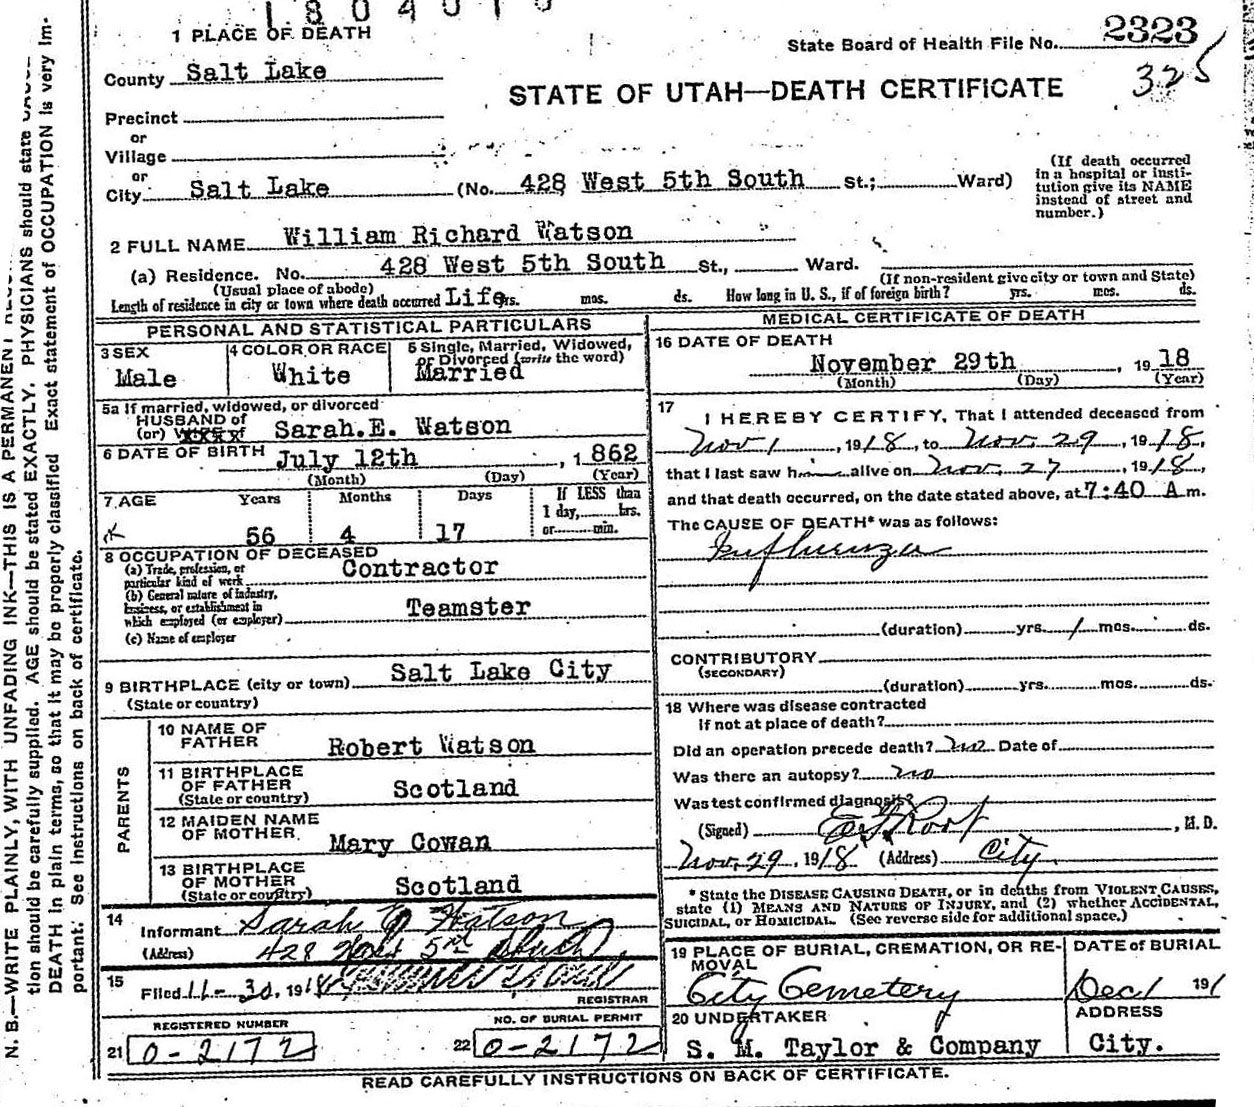 1804010
1 PLACE OF DEATH
State Board of Health File No. 2323
325
County Salt Lake
STATE OF UTAH—DEATH CERTIFICATE
Precinct
or
Village
or
City Salt Lake (No. 428 West 5th South St.; Ward)
(If death occurred
in a hospital or insti-
tution give its NAME
instead of street and
number.)
2 FULL NAME William Richard Watson
(a) Residence. No. 428 West 5th South St., Ward.
(Usual place of abode) (If non-resident give city or town and State)
Length of residence in city or town where death occurred Life yrs. mos. ds. How long in U. S., if of foreign birth? yrs. mos. ds.
PERSONAL AND STATISTICAL PARTICULARS
3 SEX
Male
4 COLOR OR RACE
White
5 Single, Married, Widowed,
or Divorced (write the word)
Married
5a If married, widowed, or divorced
HUSBAND of
(or) WIFE of Sarah.E. Watson
6 DATE OF BIRTH July 12th, 1862
(Month) (Day) (Year)
7 AGE Years Months Days If LESS than
1 day, hrs.
or min.
56 4 17
8 OCCUPATION OF DECEASED
(a) Trade, profession, or
particular kind of work Contractor
(b) General nature of industry,
business, or establishment in
which employed (or employer) Teamster
(c) Name of employer
9 BIRTHPLACE (city or town) Salt Lake City
(State or country)
PARENTS
10 NAME OF
FATHER Robert Watson
11 BIRTHPLACE
OF FATHER
(State or country) Scotland
12 MAIDEN NAME
OF MOTHER Mary Cowan
13 BIRTHPLACE
OF MOTHER
(State or country) Scotland
14
Informant Sarah E Watson
(Address) 428 West 5th South
15
Filed 11-30, 1918
REGISTRAR
REGISTERED NUMBER
21 0-2172
NO. OF BURIAL PERMIT
22 0-2172
MEDICAL CERTIFICATE OF DEATH
16 DATE OF DEATH
November 29th, 1918
(Month) (Day) (Year)
17
I HEREBY CERTIFY, That I attended deceased from
Nov 1, 1918, to Nov. 29, 1918,
that I last saw him alive on Nov. 27, 1918,
and that death occurred, on the date stated above, at 7:40 A m.
The CAUSE OF DEATH* was as follows:
Influenza
(duration) yrs. 1 mos. ds.
CONTRIBUTORY
(SECONDARY)
(duration) yrs. mos. ds.
18 Where was disease contracted
if not at place of death?
Did an operation precede death? no Date of
Was there an autopsy? no
Was test confirmed diagnosis?
(Signed) Root, M. D.
Nov. 29, 1918 (Address) City
* State the DISEASE CAUSING DEATH, or in deaths from VIOLENT CAUSES,
state (1) MEANS AND NATURE OF INJURY, and (2) whether ACCIDENTAL,
SUICIDAL, OR HOMICIDAL. (See reverse side for additional space.)
19 PLACE OF BURIAL, CREMATION, OR RE-
MOVAL
City Cemetery
DATE of BURIAL
Dec 1 191
20 UNDERTAKER
S. M. Taylor & Company
ADDRESS
City.
READ CAREFULLY INSTRUCTIONS ON BACK OF CERTIFICATE.
N. B.—WRITE PLAINLY, WITH UNFADING INK—THIS IS A PERMANENT
tion should be carefully supplied. AGE should be stated EXACTLY. PHYSICIANS should state
DEATH in plain terms, so that it may be properly classified Exact statement of OCCUPATION is very im-
portant. See instructions on back of certificate.